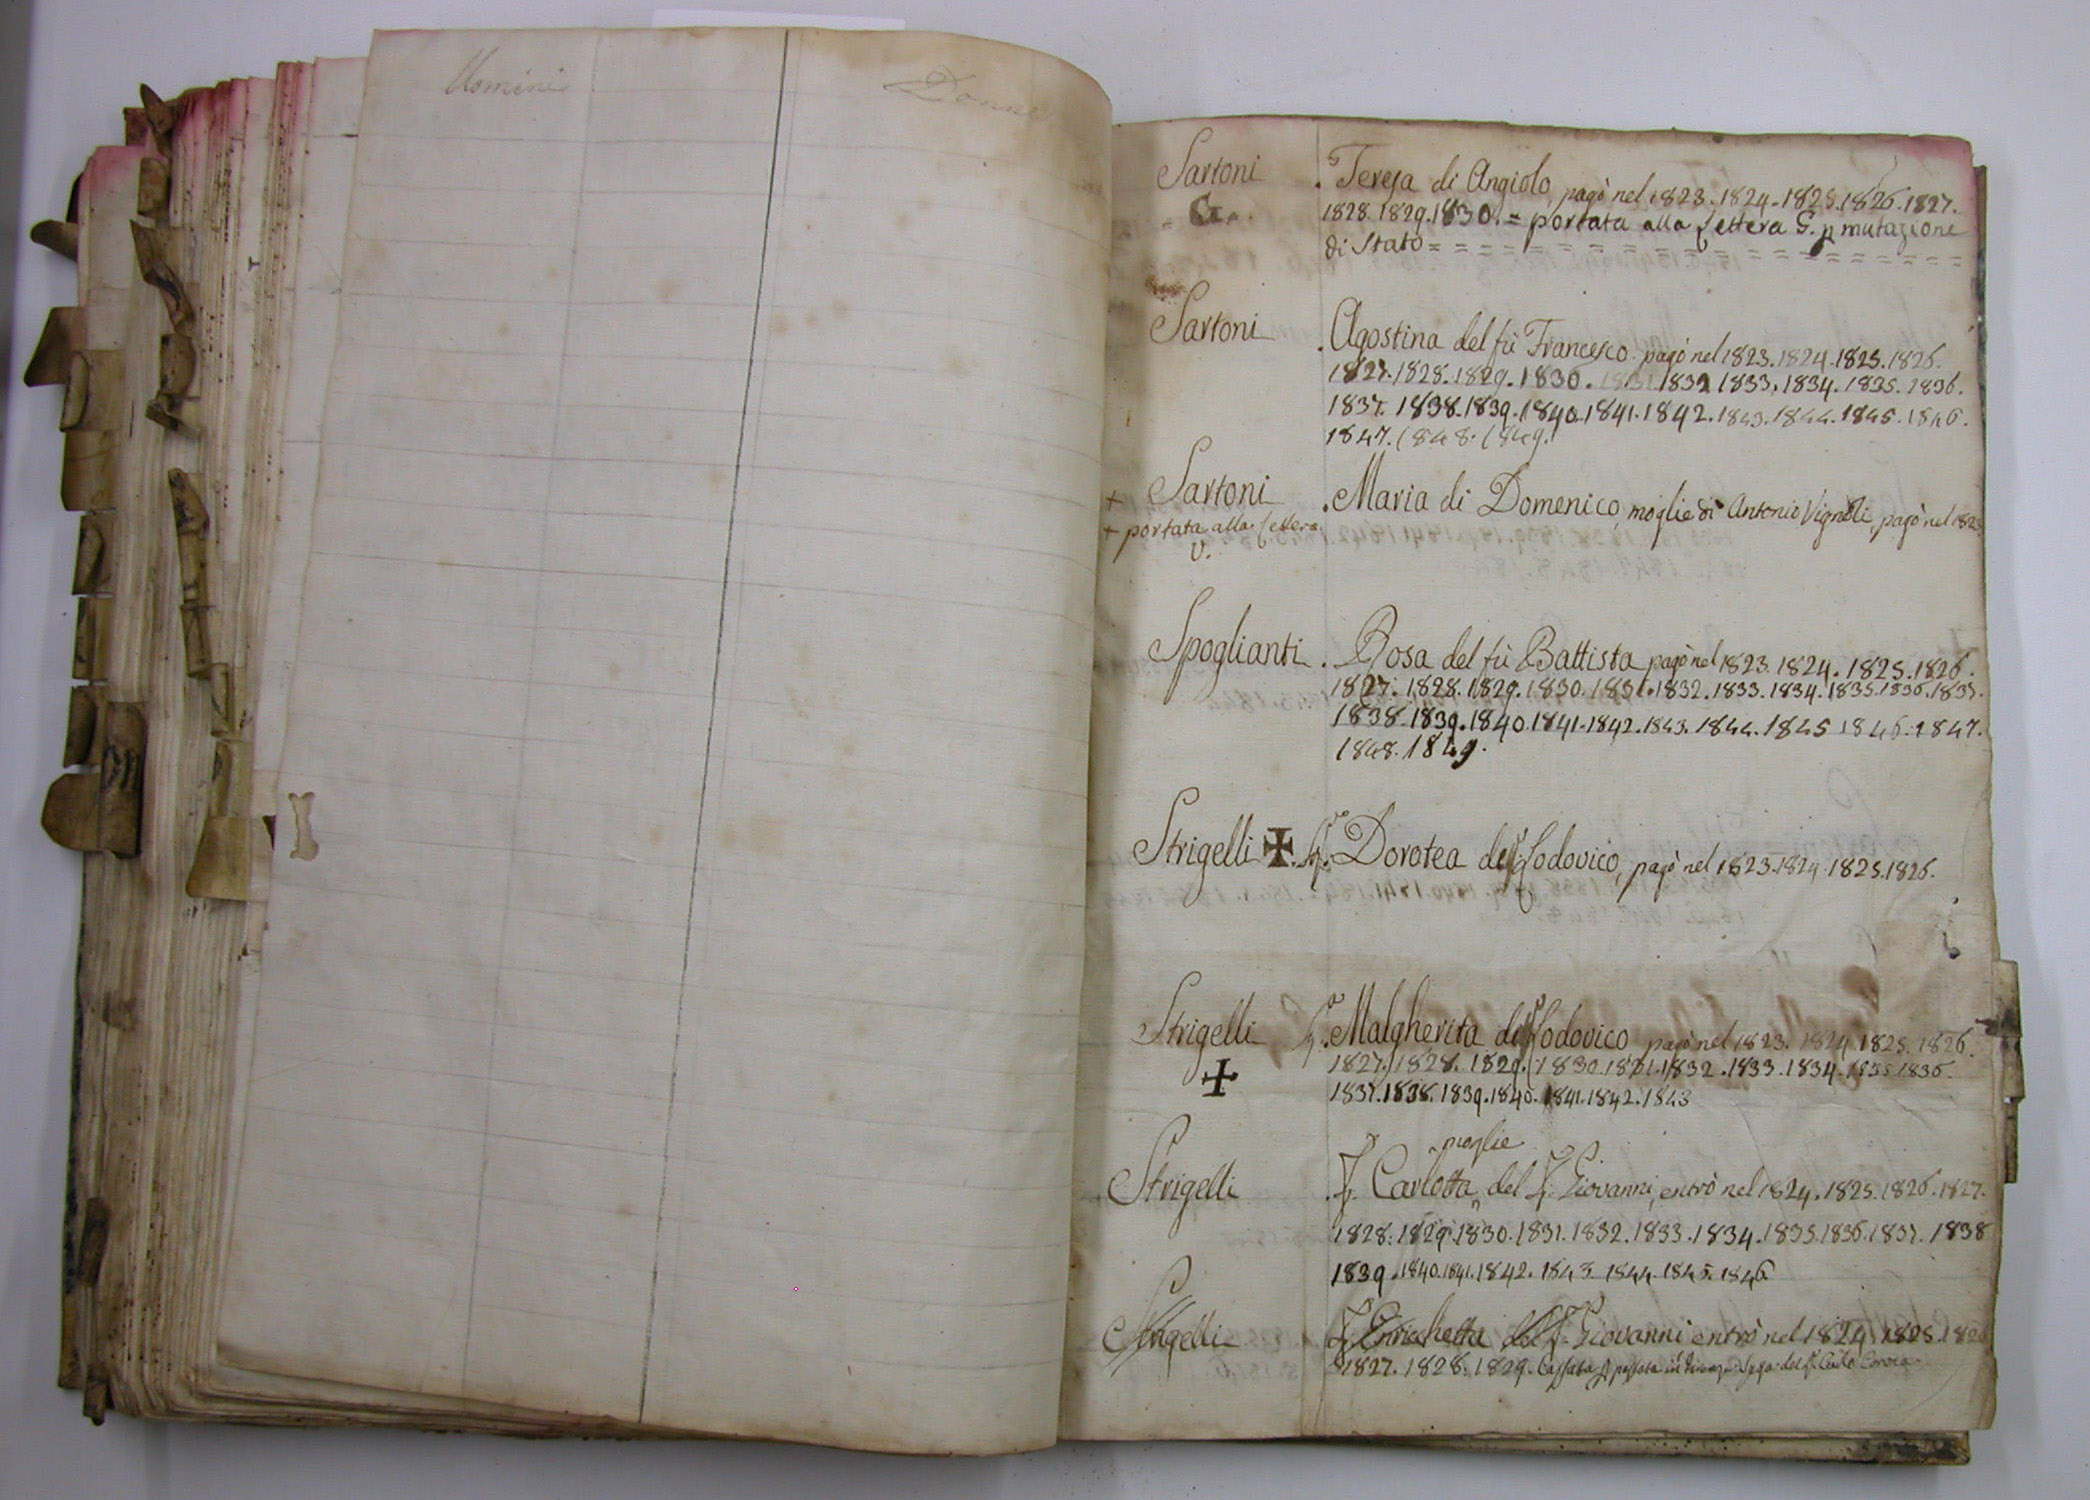 Uomini Donne
Sartoni . Teresa di Angiolo, pagò nel 1823.1824.1825.1826.1827.
G. 1828.1829.1830.= portata alla Lettera G. p mutazione
di Stato = = = = = = = = = = = = = = = = =
Sartoni . Agostina del fù Francesco pagò nel 1823.1824.1825.1826.
1827.1828.1829.1830.1831.1832.1833.1834.1835.1836.
1837.1838.1839.1840.1841.1842.1843.1844.1845.1846.
1847.1848.1849.
+ Sartoni . Maria di Domenico, moglie di Antonio Vignoli, pagò nel 1823
+ portata alla Lettera
V.
Spoglianti . Rosa del fù Battista pagò nel 1823.1824.1825.1826.
1827.1828.1829.1830.1831.1832.1833.1834.1835.1836.1837.
1838.1839.1840.1841.1842.1843.1844.1845.1846.1847.
1848.1849.
Strigelli ✠ Dorotea del Lodovico, pagò nel 1823.1824.1825.1826.
Strigelli Malgherita del Lodovico pagò nel 1823.1824.1825.1826.
✠ 1827.1828.1829.1830.1831.1832.1833.1834.1835.1836.
1837.1838.1839.1840.1841.1842.1843
moglie
Strigelli Carlotta del Giovanni, entrò nel 1824.1825.1826.1827.
1828.1829.1830.1831.1832.1833.1834.1835.1836.1837.1838
1839.1840.1841.1842.1843.1844.1845.1846
Strigelli Enrichetta del Giovanni entrò nel 1824.1825.1826
1827.1828.1829. Cassata